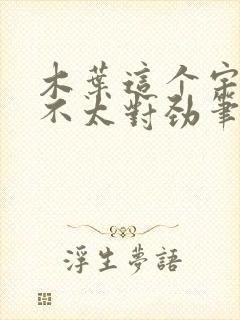 木葉這个
不太對劲筆
浮生夢語